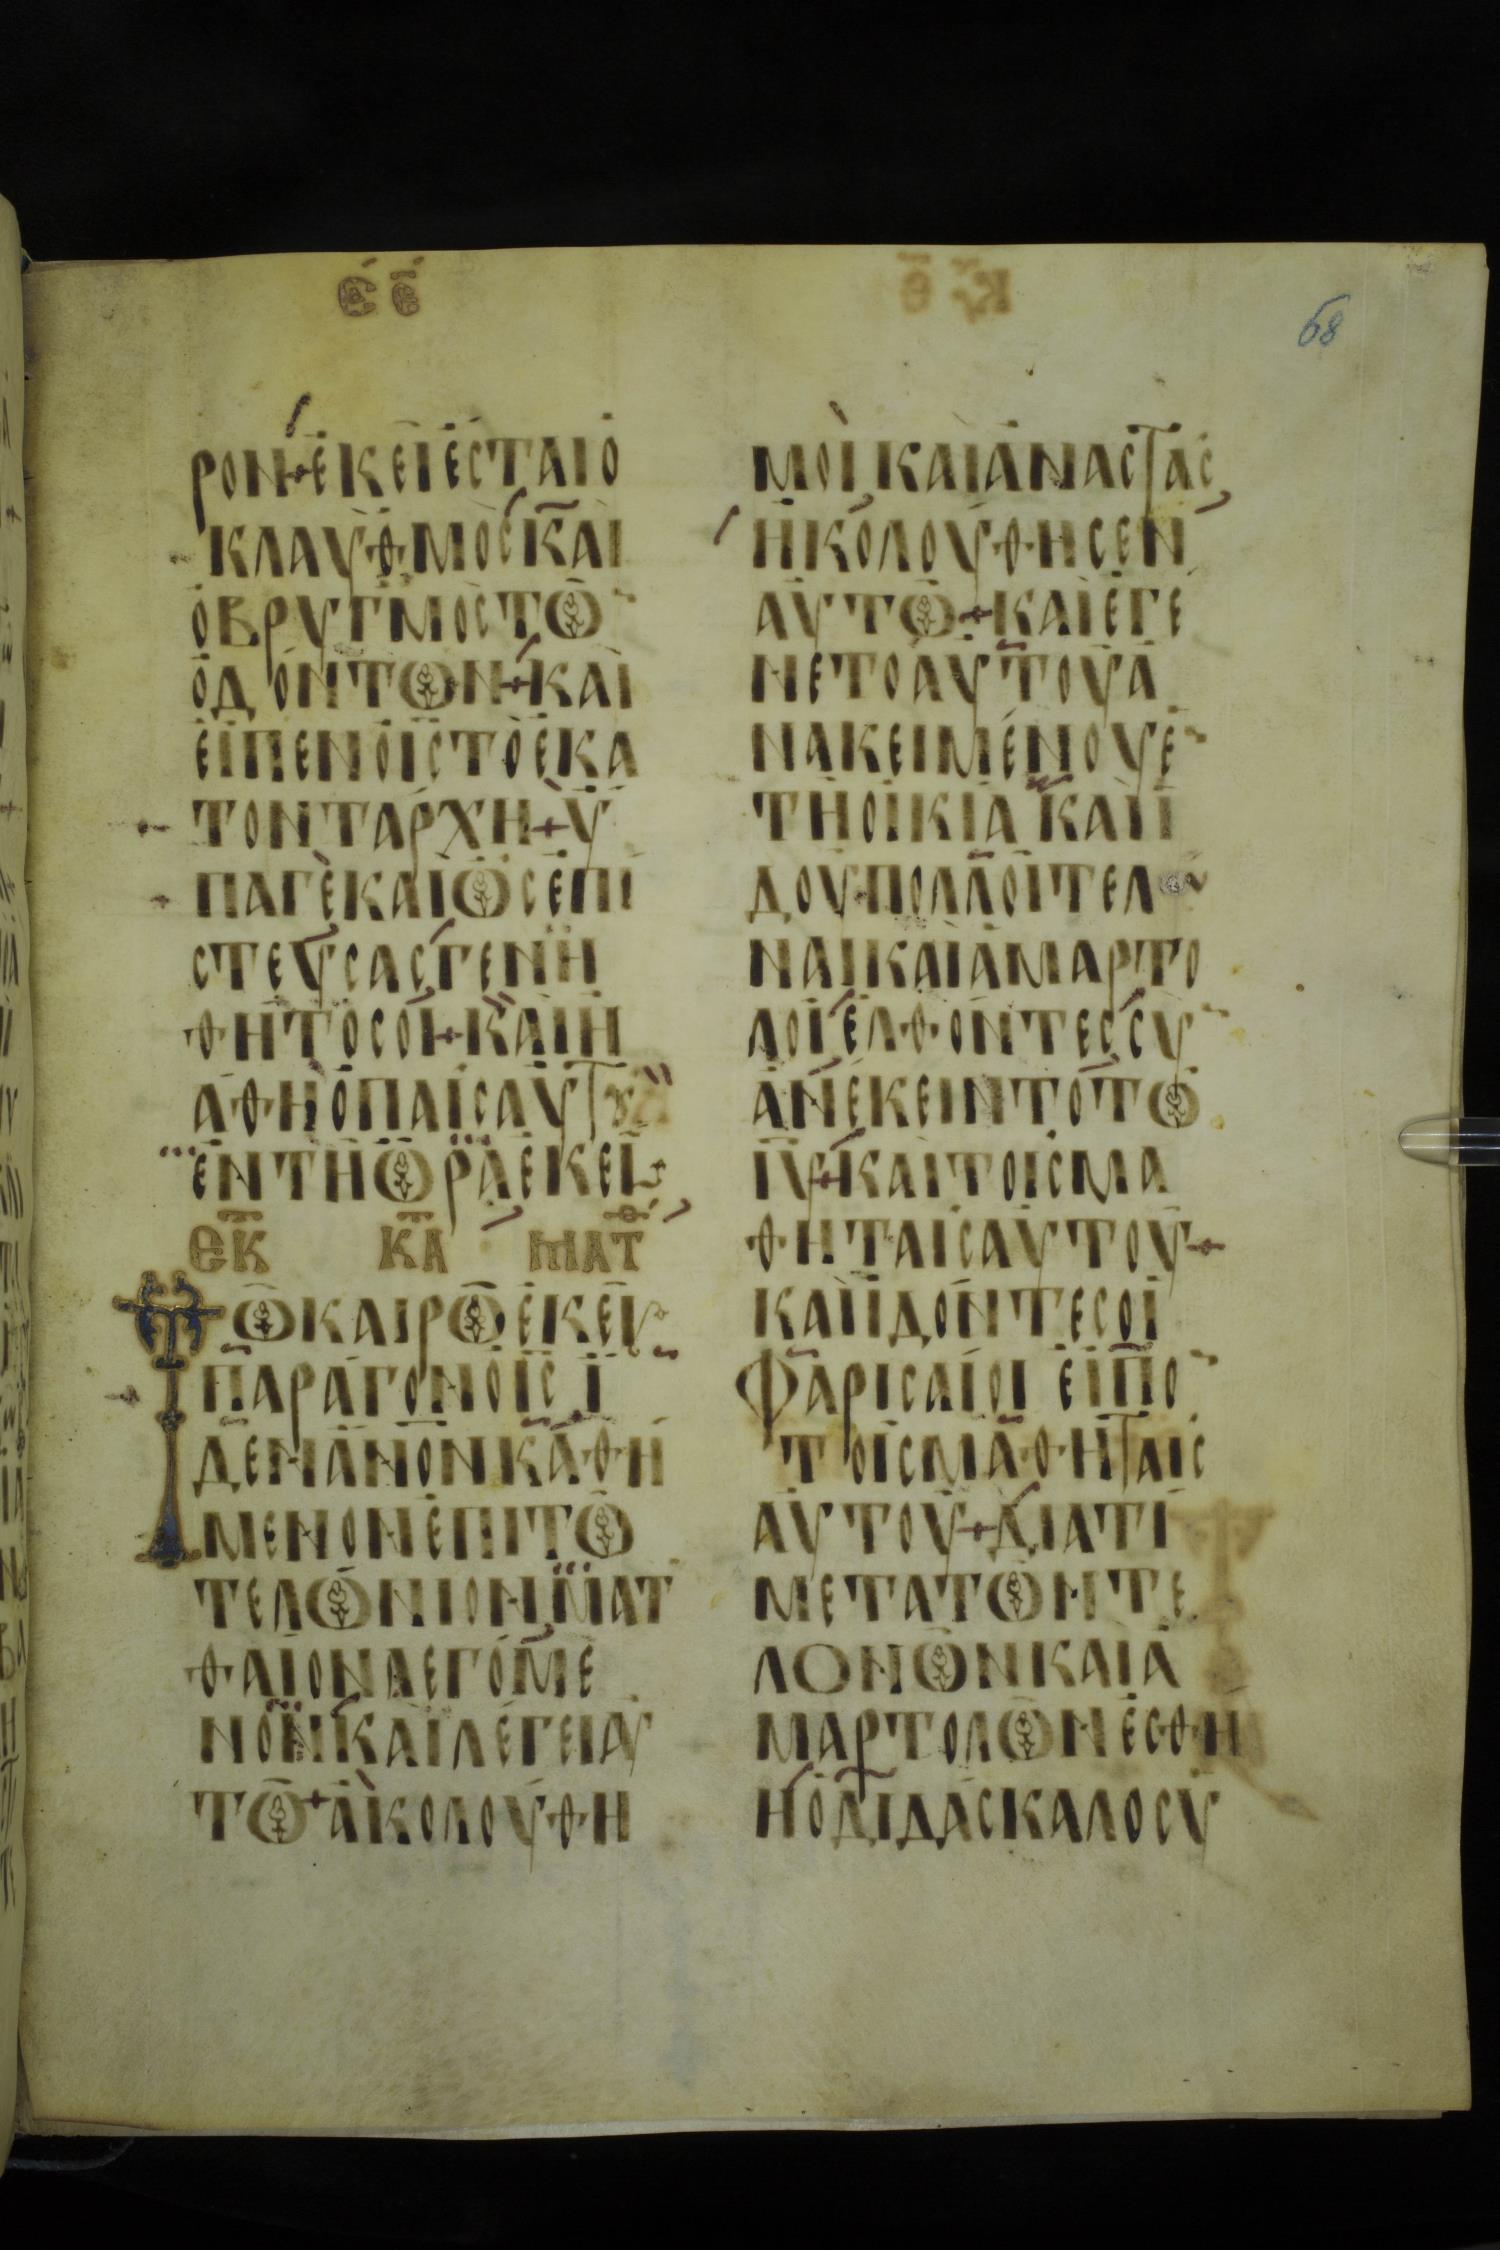 68
ΡΟΝ+ΕΚΕΙΕCΤΑΙΟ
ΚΛΑΥΘΜΟCΚΑΙ
ΟΒΡΥΓΜΟCΤΩ
ΟΔΟΝΤΩΝ+ΚΑΙ
ΕΙΠΕΝΟΙCΤΟΕΚΑ
ΤΟΝΤΑΡΧΗ+Υ
ΠΑΓΕΚΑΙΩCΕΠΙ
CΤΕΥCΑCΓΕΝΗ
ΘΗΤΟCΟΙ+ΚΑΙΙΗ
ΑΘΗΟΠΑΙCΑΥΤȢ
ΕΝΤΗΩΡΑΕΚΕΙ
ΕΚ ΚΑ ΜΑΤΘ
ΤΩΚΑΙΡΩΕΚΕΙ
ΠΑΡΑΓΟΝΟΙC Ι
ΔΕΝΑΝΟΝΚΑΘΗ
ΜΕΝΟΝΕΠΙΤΩ
ΤΕΛΩΝΙΟΝΜΑΤ
ΘΑΙΟΝΛΕΓΟΜΕ
ΝΟΝΚΑΙΛΕΓΕΙΑΥ
ΤΩ+ΑΚΟΛΟΥΘΗ
ΜΟΙΚΑΙΑΝΑCΤΑC
ΗΚΟΛΟΥΘΗCΕΝ
ΑΥΤΩ+ΚΑΙΕΓΕ
ΝΕΤΟΑΥΤΟΥΑ
ΝΑΚΕΙΜΕΝΟΥΕ
ΤΗΟΙΚΙΑΚΑΙΙ
ΔΟΥΠΟΛΛΟΙΤΕΛΩ
ΝΑΙΚΑΙΑΜΑΡΤΟ
ΛΟΙΕΛΘΟΝΤΕCCΥ
ΑΝΕΚΕΙΝΤΟΤΩ
ΙΥ+ΚΑΙΤΟΙCΜΑ
ΘΗΤΑΙCΑΥΤΟΥ+
ΚΑΙΙΔΟΝΤΕCΟΙ
ΦΑΡΙCΑΙΟΙ ΕΙΠΟ
ΤΟΙCΜΑΘΗΤΑΙC
ΑΥΤΟΥ+ΔΙΑΤΙ
ΜΕΤΑΤΩΝΤΕ
ΛΟΝΩΝΚΑΙΑ
ΜΑΡΤΟΛΩΝΕCΘΗ
ΗΟΔΙΔΑCΚΑΛΟCΥ